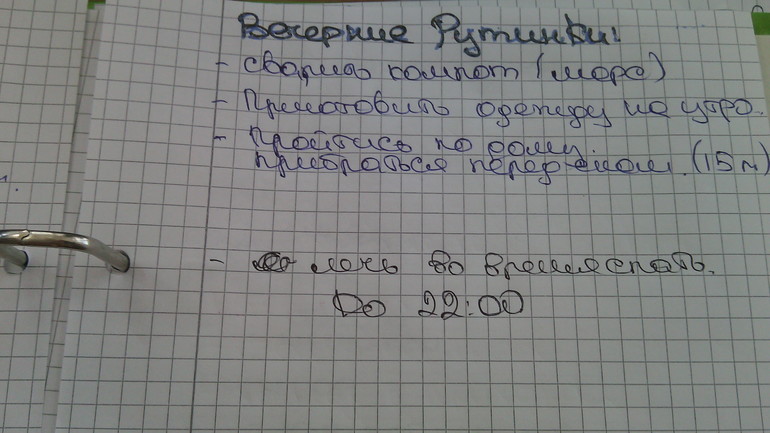 Вечерние Рутинки:
- сварить компот (морс)
- Приготовить одежду на утро.
- Пройтись по дому.
прибраться перед сном. (15 м)
- лечь во время спать.
До 22:00